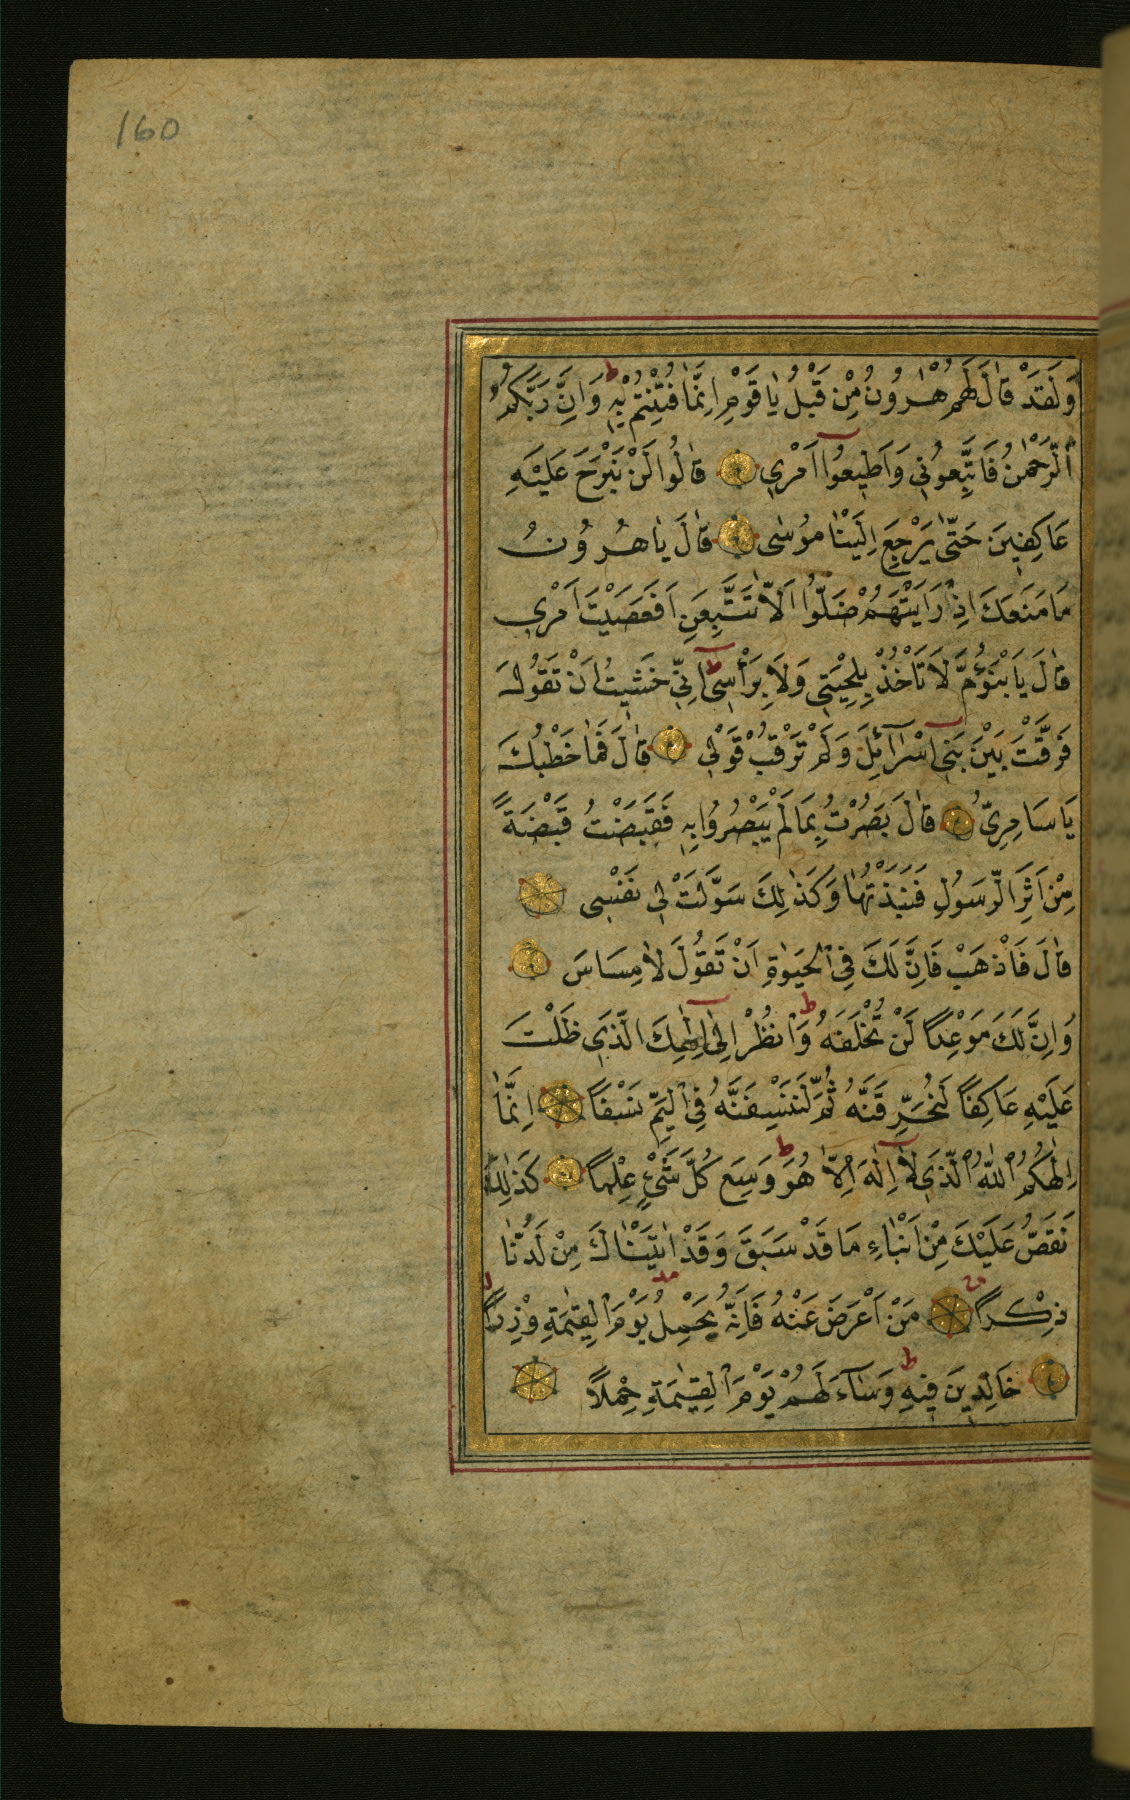 160
وَلَقَدْ قَالَ لَهُمْ هٰرُونُ مِنْ قَبْلُ يَا قَوْمِ اِنَّمَا فُتِنْتُمْ بِهِ ط وَاِنَّ رَبَّكُمُ
الرَّحْمٰنُ فَاتَّبِعُونِي وَاَطِيعُوا اَمْرِي قَالُوا لَنْ نَبْرَحَ عَلَيْهِ
عَاكِفِينَ حَتّٰى يَرْجِعَ اِلَيْنَا مُوسٰى قَالَ يَا هٰرُونُ
مَا مَنَعَكَ اِذْ رَاَيْتَهُمْ ضَلُّوا اَلَّا تَتَّبِعَنِ اَفَعَصَيْتَ اَمْرِي
قَالَ يَا بْنَؤُمَّ لَا تَاْخُذْ بِلِحْيَتِي وَلَا بِرَاْسِي ط اِنِّي خَشِيتُ اَنْ تَقُولَ
فَرَّقْتَ بَيْنَ بَنِي اِسْرَآئِلَ وَلَمْ تَرْقُبْ قَوْلِي قَالَ فَمَا خَطْبُكَ
يَا سَامِرِيُّ قَالَ بَصُرْتُ بِمَا لَمْ يَبْصُرُوا بِهِ فَقَبَضْتُ قَبْضَةً
مِنْ اَثَرِ الرَّسُولِ فَنَبَذْتُهَا وَكَذٰلِكَ سَوَّلَتْ لِي نَفْسِي
قَالَ فَاذْهَبْ فَاِنَّ لَكَ فِي الْحَيٰوةِ اَنْ تَقُولَ لَا مِسَاسَ
وَاِنَّ لَكَ مَوْعِدًا لَنْ تُخْلَفَهُ ط وَانْظُرْ اِلٰى اِلٰهِكَ الَّذِي ظَلْتَ
عَلَيْهِ عَاكِفًا لَنُحَرِّقَنَّهُ ثُمَّ لَنَنْسِفَنَّهُ فِي الْيَمِّ نَسْفًا اِنَّمَا
اِلٰهُكُمُ اللّٰهُ الَّذِي لَا اِلٰهَ اِلَّا هُوَ ط وَسِعَ كُلَّ شَيْءٍ عِلْمًا كَذٰلِكَ
نَقُصُّ عَلَيْكَ مِنْ اَنْبَاءِ مَا قَدْ سَبَقَ وَقَدْ اٰتَيْنَاكَ مِنْ لَدُنَّا
ذِكْرًا مَنْ اَعْرَضَ عَنْهُ فَاِنَّهُ يَحْمِلُ يَوْمَ الْقِيٰمَةِ وِزْرًا
خَالِدِينَ فِيهِ ط وَسَآءَ لَهُمْ يَوْمَ الْقِيٰمَةِ حِمْلًا